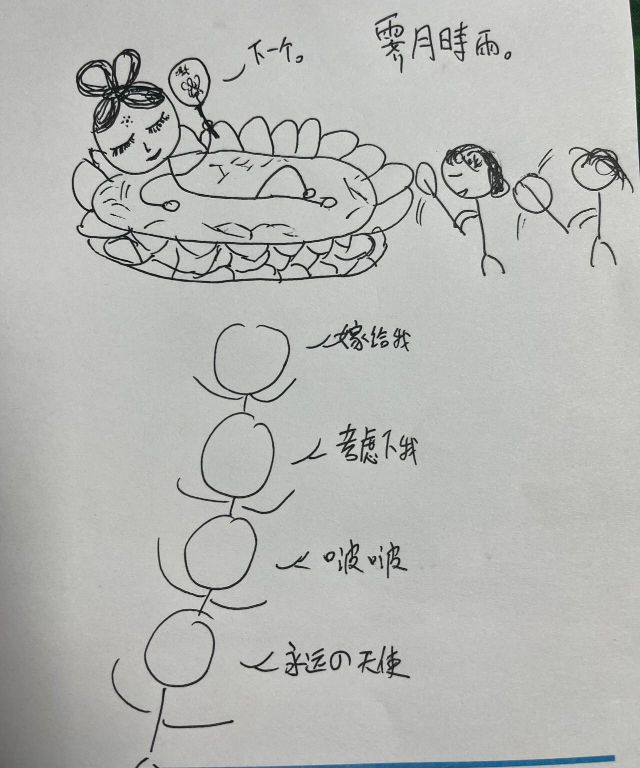 下一个。
霁月時雨。
嫁给我
考虑下我
啵啵
永远の天使